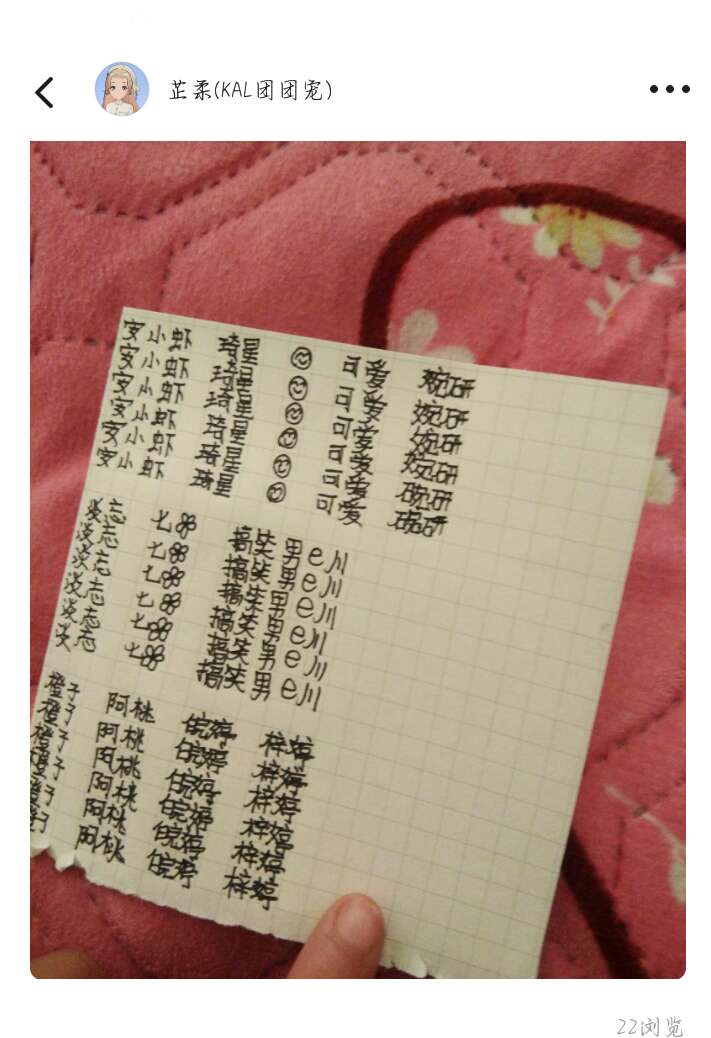 芷柔(KAL团团宠)
安小虾 琦星 可爱 婉研
安小虾 琦星 可爱 婉研
安小虾 琦星 可爱 婉研
安小虾 琦星 可爱 婉研
安小虾 琦星 可爱 碗研
安小虾 琦星 可爱 碗研
淡志 七 搞笑男e川
淡志 七 搞笑男e川
淡志 七 搞笑男e川
淡志 七 搞笑男e川
淡志 七 搞笑男e川
淡志 七 搞笑男e川
橙子 阿桃 皖婷 梓婷
橙子 阿桃 皖婷 梓婷
橙子 阿桃 皖婷 梓婷
橙子 阿桃 皖婷 梓婷
橙子 阿桃 皖婷 梓婷
橙子 阿桃 皖婷 梓婷
22浏览